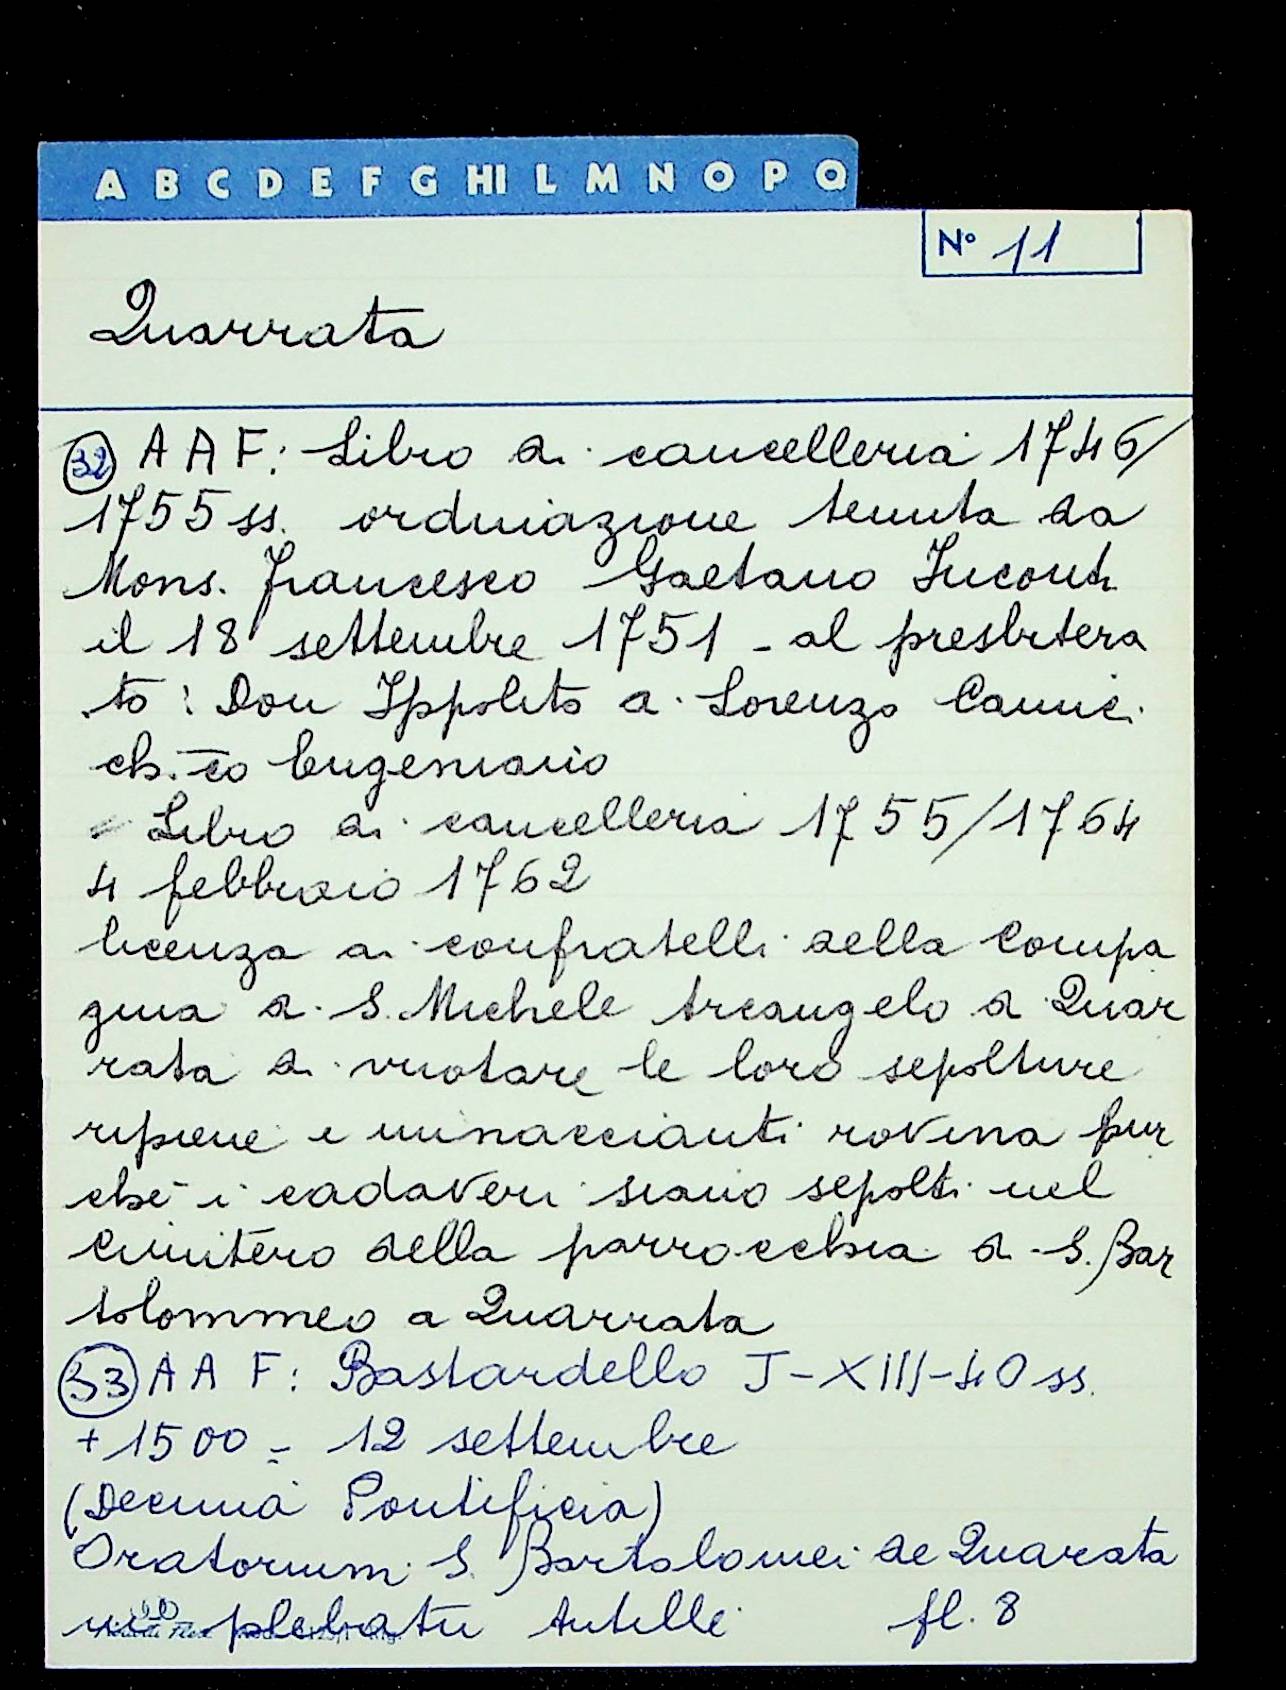 A B C D E F G HI L M N O P Q
N° 11
Quarrata
32 A A F: Libro di cancelleria 1746/
1755 ss. ordinazione tenuta da
Mons. Francesco Gaetano Incontri
il 18 settembre 1751 - al presbitera
to: Don Ippolito di Lorenzo Cannic
ch. co Eugeniano
= Libro di cancelleria 1755/1764
4 febbraio 1762
licenza ai confratelli della Compa
gnia di S. Michele Arcangelo a Quar
rata di vuotare le loro sepolture
ripiene e minaccianti rovina pur
chè i cadaveri siano sepolti nel
cimitero della parrocchia di S. Bar
tolommeo a Quarrata
33 A A F: Bastardello J-XIII-40 ss.
+ 1500 = 12 settembre
(Decima Pontificia)
Oratorium S. Bartolomei de Quarata
in plebatu Antelle fl. 8